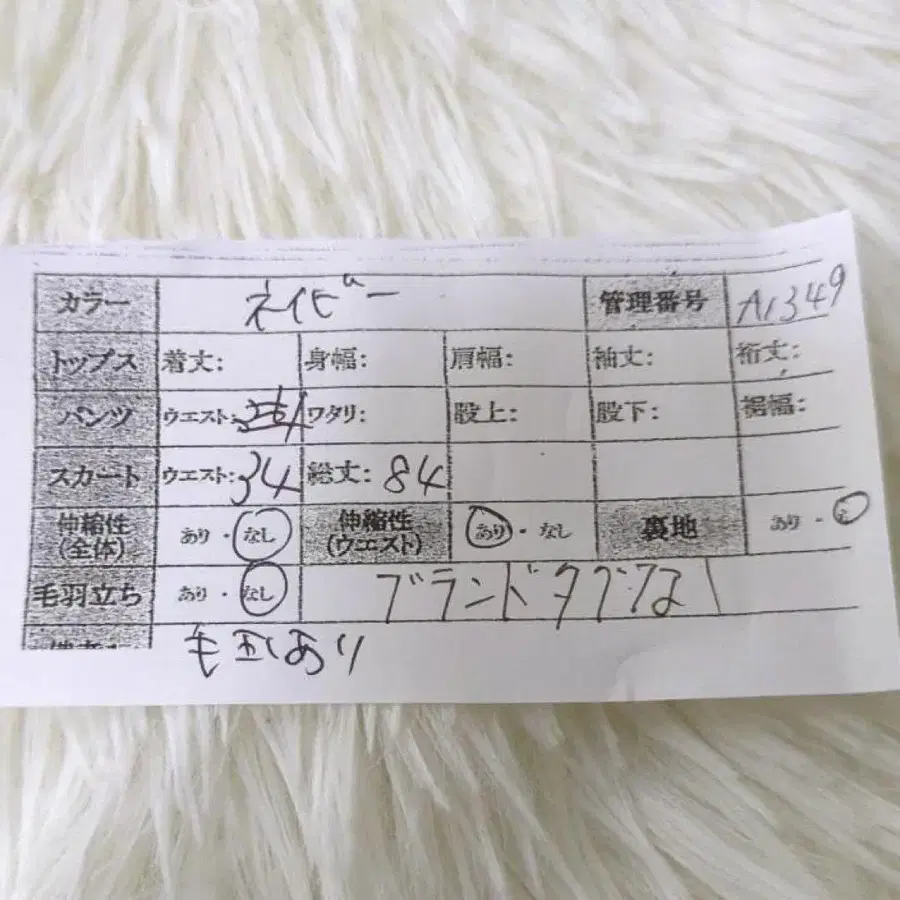 カラー ネイビー 管理番号 A1349
トップス 着丈: 身幅: 肩幅: 袖丈: 裄丈:
パンツ ウエスト: ワタリ: 股上: 股下: 裾幅:
スカート ウエスト:34 総丈:84
伸縮性(全体) あり・なし 伸縮性(ウエスト) あり・なし 裏地 あり・
毛羽立ち あり・なし ブランドタグな
毛玉あり